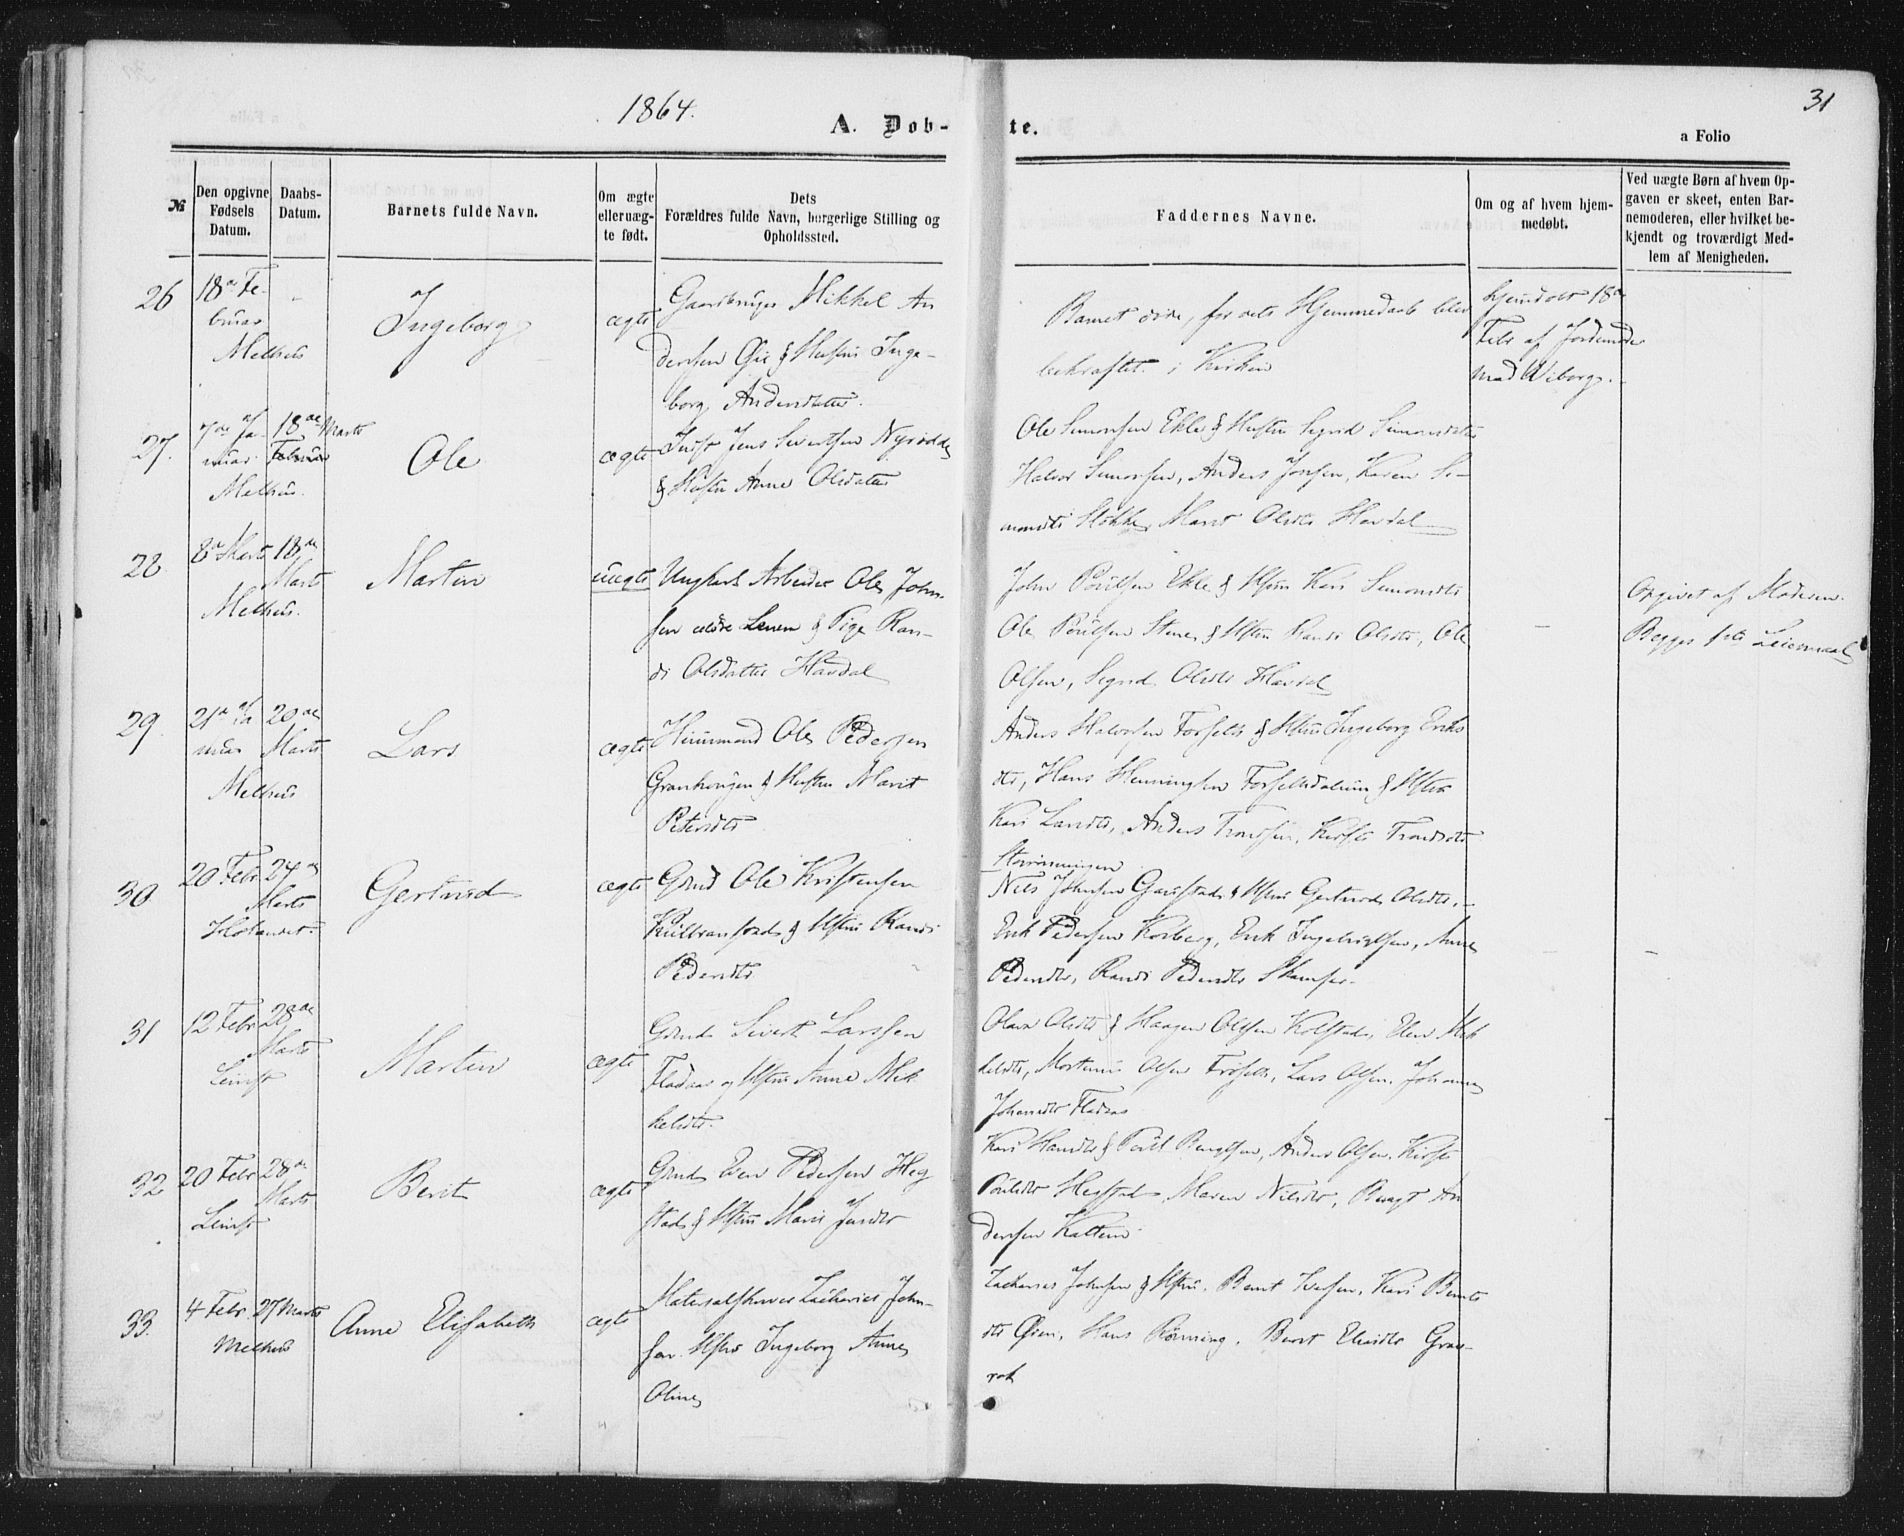 1864.
A. Døb-
te.
31
a Folio
№
Den opgivne Fødsels Datum.
Daabs-Datum.
Barnets fulde Navn.
Om ægte eller uæg-te født.
Dets Forældres fulde Navn, borgerlige Stilling og Opholdssted.
Faddernes Navne.
Om og af hvem hjem-medøbt.
Ved uægte Børn af hvem Op-gaven er skeet, enten Bar-nemoderen, eller hvilket be-kjendt og troværdigt Med-lem af Menigheden.
26
18de Fe-
bruar
Melhus
Ingeborg
ægte
Gaardbruger Mikkel An
dersen Øie & Hustru Inge-
borg Andersdatter.
Barnet døde, før dets Hjemmedaab blev
bekræftet i Kirken
hjemdøbt 18de
Febr af Jordemoder
Mad Wiborg.
27.
7de Ja-
nuar.
Melhus.
18de Marts
Februar
Ole
ægte
Jens Sivertsen
& Hustru Anne Olsdatter
Ole Simonsen Ekle & Hustru Sigrid Simonsdatter
Halvor Simonsen, Anders Jonsen, Karen Si-
monsdt Stokke, Marit Olsdtr Havdal
28
8de Marts
Melhus.
18de
Marts
Martin
uægte
Ungkarl Arbeider Ole John-
sen ældre & Pige Ran-
di Olsdatter Havdal
John Povelsen Ekle & Hstru Kari Simonsdtr
Ole Povelsen Stene & Hstru Randi Olsdtr, Ole
Olsen, Sigrid Olsdtr Havdal
-
Opgivet af Moderen.
Begges 1ste Leiermaal
29.
21de Ja
nuar
Melhus
20de
Marts
Lars
ægte
Huusmand Ole Pedersen
& Hustru Marit
Petersdtr
Anders Halvorsen Forseth & Hstru Ingeborg Eriks
dtr, Hans Henningsen Forsethdalum & Hstru
Kari Larsdtr, Anders Trondsen, Kirsti Trondsdtr
30
20 Febr
Høilandet.
24de
Marts
Gertrud
ægte
Grmd Ole Kristensen
& Hstru Randi
Pedersdtr
Nils Johnsen Gaustad & Hstru Gertrud Olsdtr,
Erik Pedersen Korberg, Erik Ingebrigtsen, Anne
Pedersdtr, Randi Pedersdtr
-
-
31
12 Febr
Leinst
28de
Marts
Martin
ægte
Grmd Sivert Larssen
Flaaaas og Hstru Anne Mik
kelsdtr.
Olava Olsdtr & Haagen Olsen Kolstad, Elen Mik
kelsdtr, Olsen, Lars Olsen, Johanna
Johansdtr
32
20 Febr
Leinst
28de
Marts
Berit
ægte
Grmd Even Pedersen Heg
stad & Hstru Marit Jonsdtr
Kari Hansdtr & Povel Bengtsen, Anders Olsen, Kirsti
Povelsdtr Hegstad, Maren Nilsdtr, Bengt An
dersen Kattem
33.
4 Febr.
Melhus
27 Marts
Anne Elisabeth
ægte
Zacharias John-
sen Hstru Ingeborg Anne
Oline
Zacharias Johnsen & Hstru, Bernt Iversen, Kari Bernts
dtr Øien, Hans Rønning, Berit